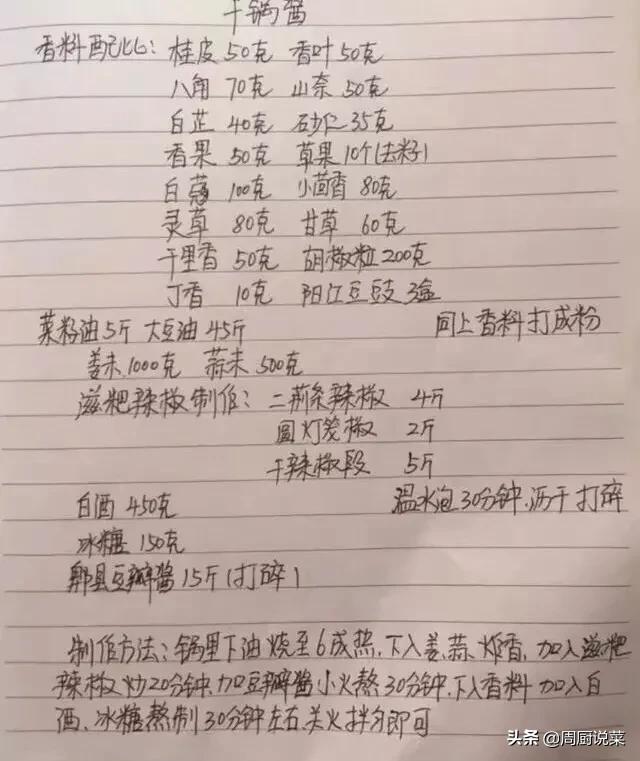 干锅酱
香料配比：桂皮 50克 香叶 50克
八角 70克 山奈 50克
白芷 40克 砂仁 35克
香果 50克 草果 10个(去籽)
白蔻 100克 小茴香 80克
灵草 80克 甘草 60克
千里香 50克 胡椒粒 200克
丁香 10克 阳江豆豉 3盒
菜籽油 5斤 大豆油 45斤 同上香料打成粉
姜末 1000克 蒜末 500克
滋粑辣椒制作：二荆条辣椒 4斤
圆灯笼椒 2斤
干辣椒段 5斤
白酒 450克 温水泡30分钟.沥干打碎
冰糖 150克
郫县豆瓣酱 15斤(打碎)
制作方法：锅里下油烧至6成热,下入姜,蒜炸香,加入滋粑
辣椒炒20分钟,加豆瓣酱小火熬30分钟,下入香料加入白
酒、冰糖熬制30分钟左右,关火拌匀即可
头条 @周厨说菜